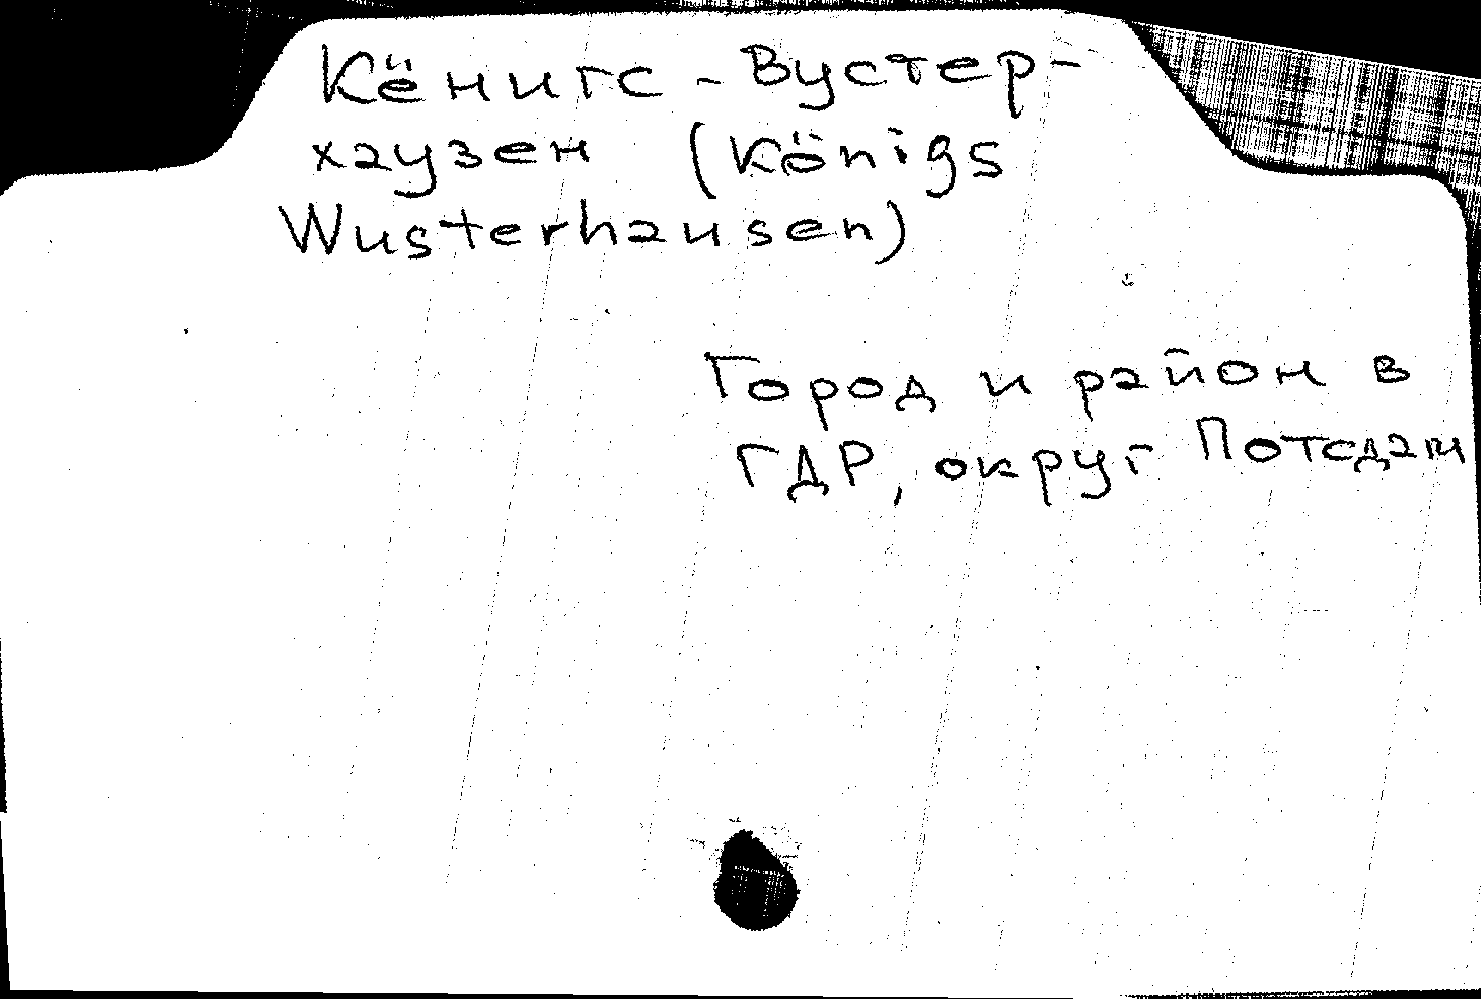 Кёнигс-Вустер-
хаузен (Königs
Wusterhausen)
Город и район в
ГДР, округ Потсдам